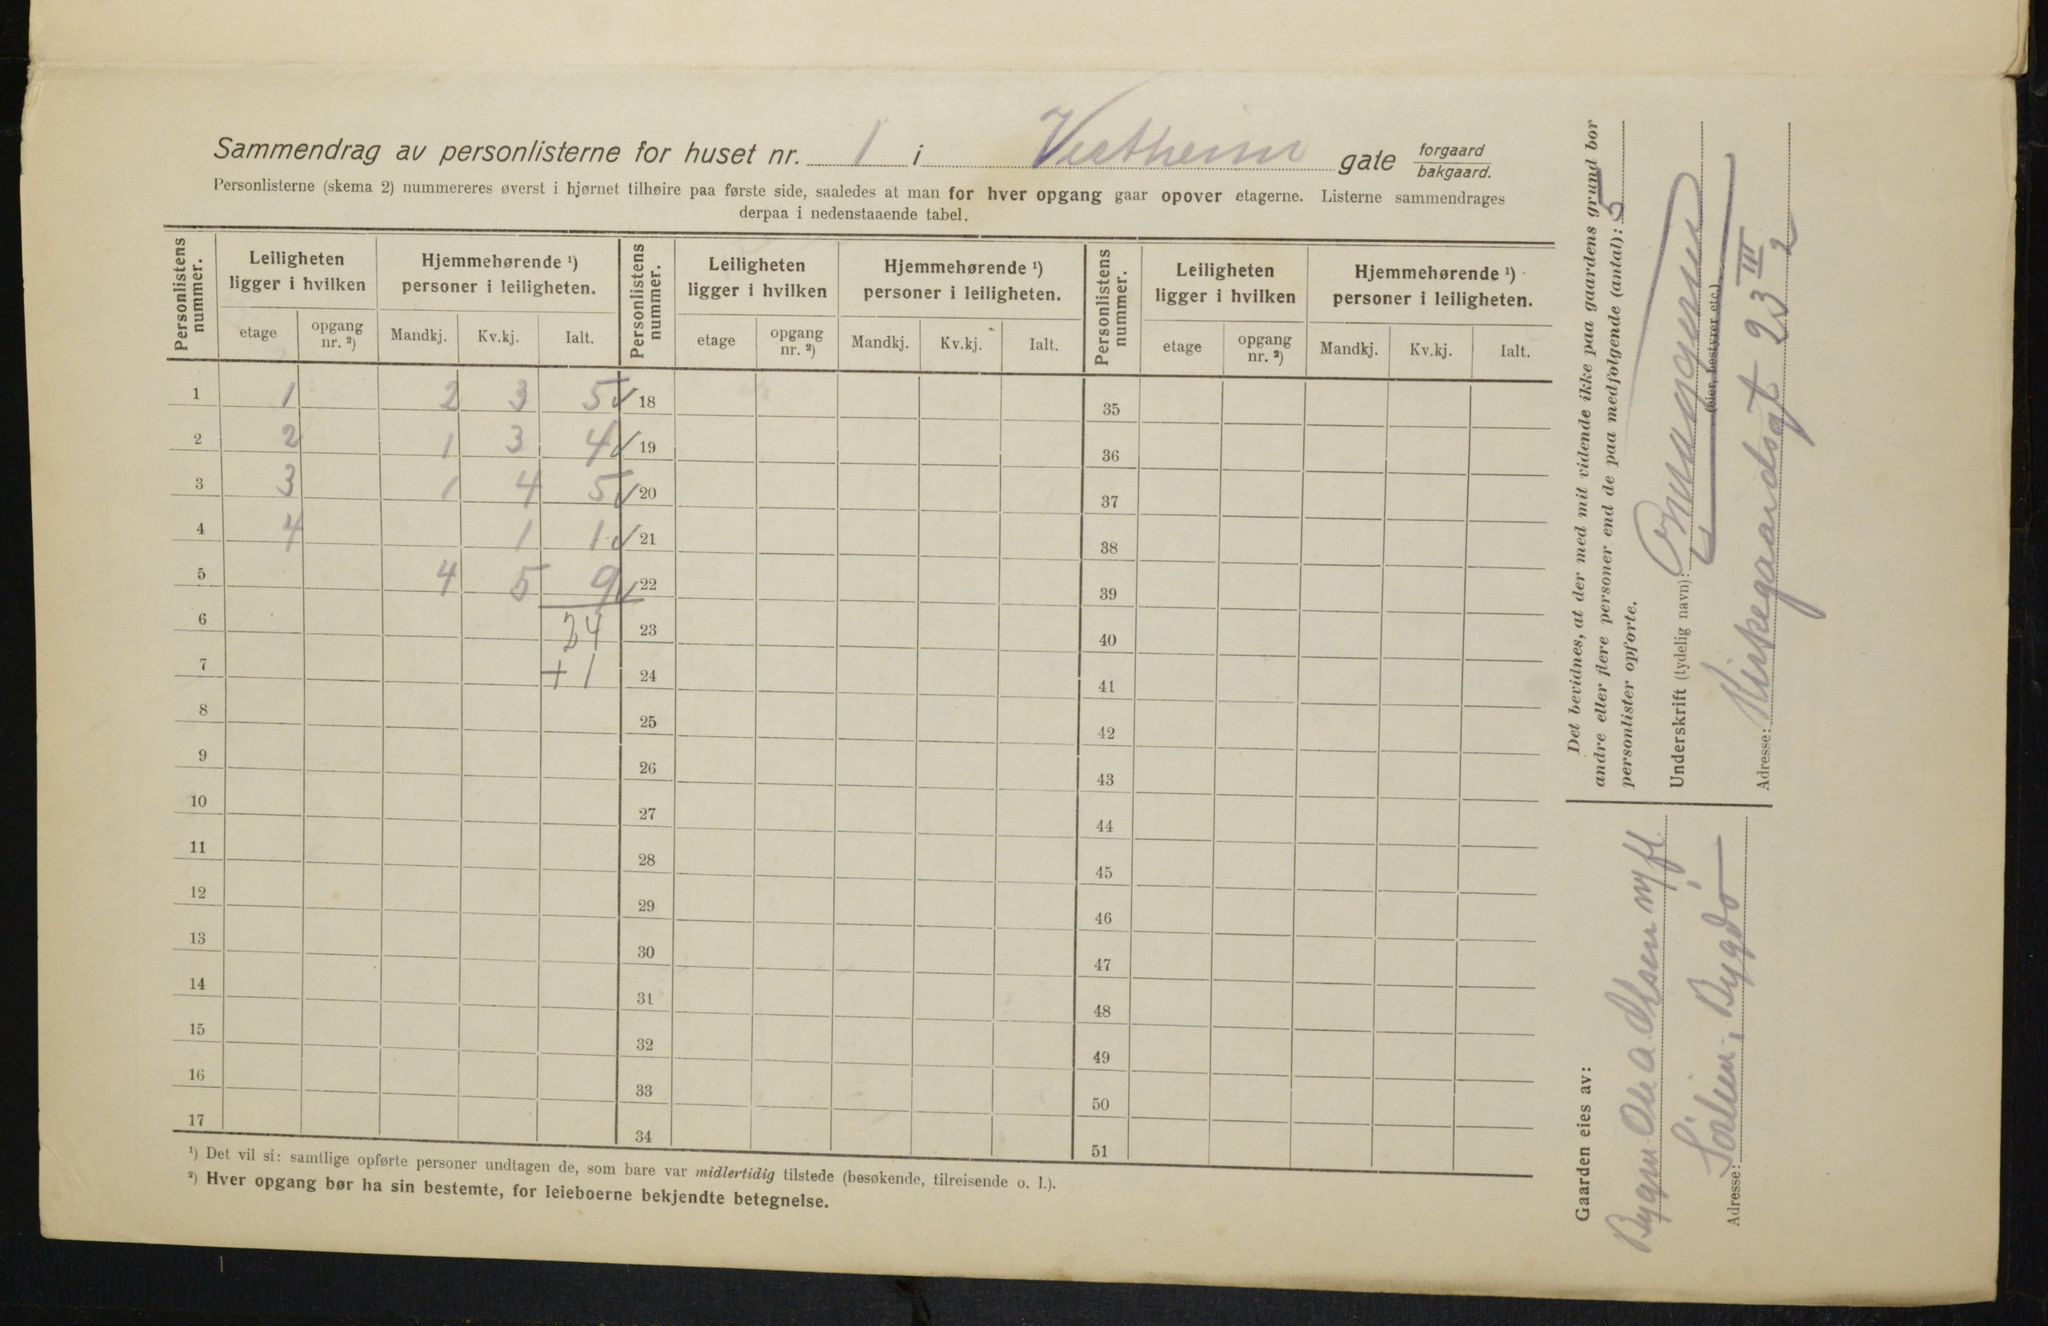 Sammendrag av personlisterne for huset nr. 1 i Vestheim gate forgaard bakgaard.
Personlisterne (skema 2) nummereres øverst i hjørnet tilhøire paa første side, saaledes at man for hver opgang gaar opover etagerne. Listerne sammendrages
derpaa i nedenstaaende tabel.
Personlistens nummer. Leiligheten ligger i hvilken Hjemmehørende ¹) personer i leiligheten. Personlistens nummer. Leiligheten ligger i hvilken Hjemmehørende ¹) personer i leiligheten. Personlistens nummer. Leiligheten ligger i hvilken Hjemmehørende ¹) personer i leiligheten.
etage opgang nr. ²) Mandkj. Kv.kj. Ialt. etage opgang nr. ²) Mandkj. Kv.kj. Ialt. etage opgang nr. ²) Mandkj. Kv.kj. Ialt.
1 1 2 3 5 ✓ 18 35
2 2 1 3 4 ✓ 19 36
3 3 1 4 5 ✓ 20 37
4 4 1 1 ✓ 21 38
5 4 5 9 ✓ 22 39
6 24 23 40
7 + 1 24 41
8 25 42
9 26 43
10 27 44
11 28 45
12 29 46
13 30 47
14 31 48
15 32 49
16 33 50
17 34 51
¹) Det vil si: samtlige opførte personer undtagen de, som bare var midlertidig tilstede (besøkende, tilreisende o. l.).
²) Hver opgang bør ha sin bestemte, for leieboerne bekjendte betegnelse.
Det bevidnes, at der med mit vidende ikke paa gaardens grund bor
andre eller flere personer end de paa medfølgende (antal): 5
personlister opførte.
Underskrift (tydelig navn):
(eier, bestyrer etc.)
Adresse: Kirkegaardsgt 23 III
2
Gaarden eies av:
Bygm. Ole A. Olsen
Adresse: Bygdø